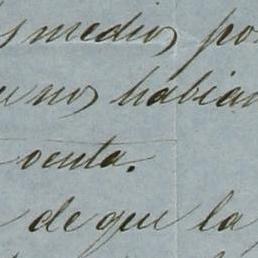 s medios po
nos habian
venta.
de que la